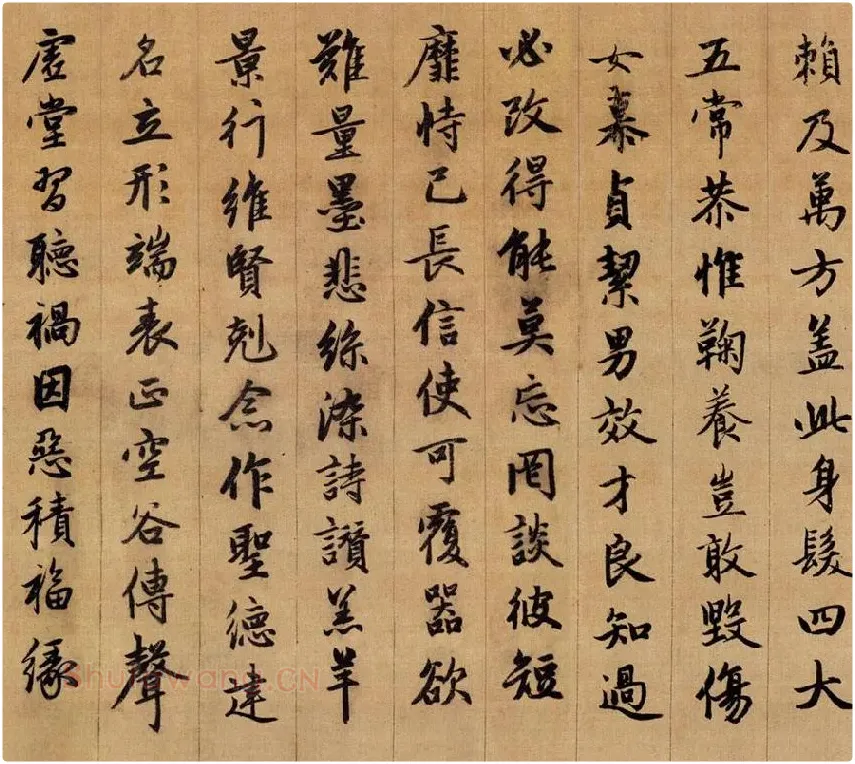 賴及萬方蓋此身髮四大
五常恭惟鞠養豈敢毀傷
女慕貞絜男效才良知過
必改得能莫忘罔談彼短
靡恃己長信使可覆器欲
難量墨悲絲染詩讚羔羊
景行維賢剋念作聖德建
名立形端表正空谷傳聲
虛堂習聽禍因惡積福緣